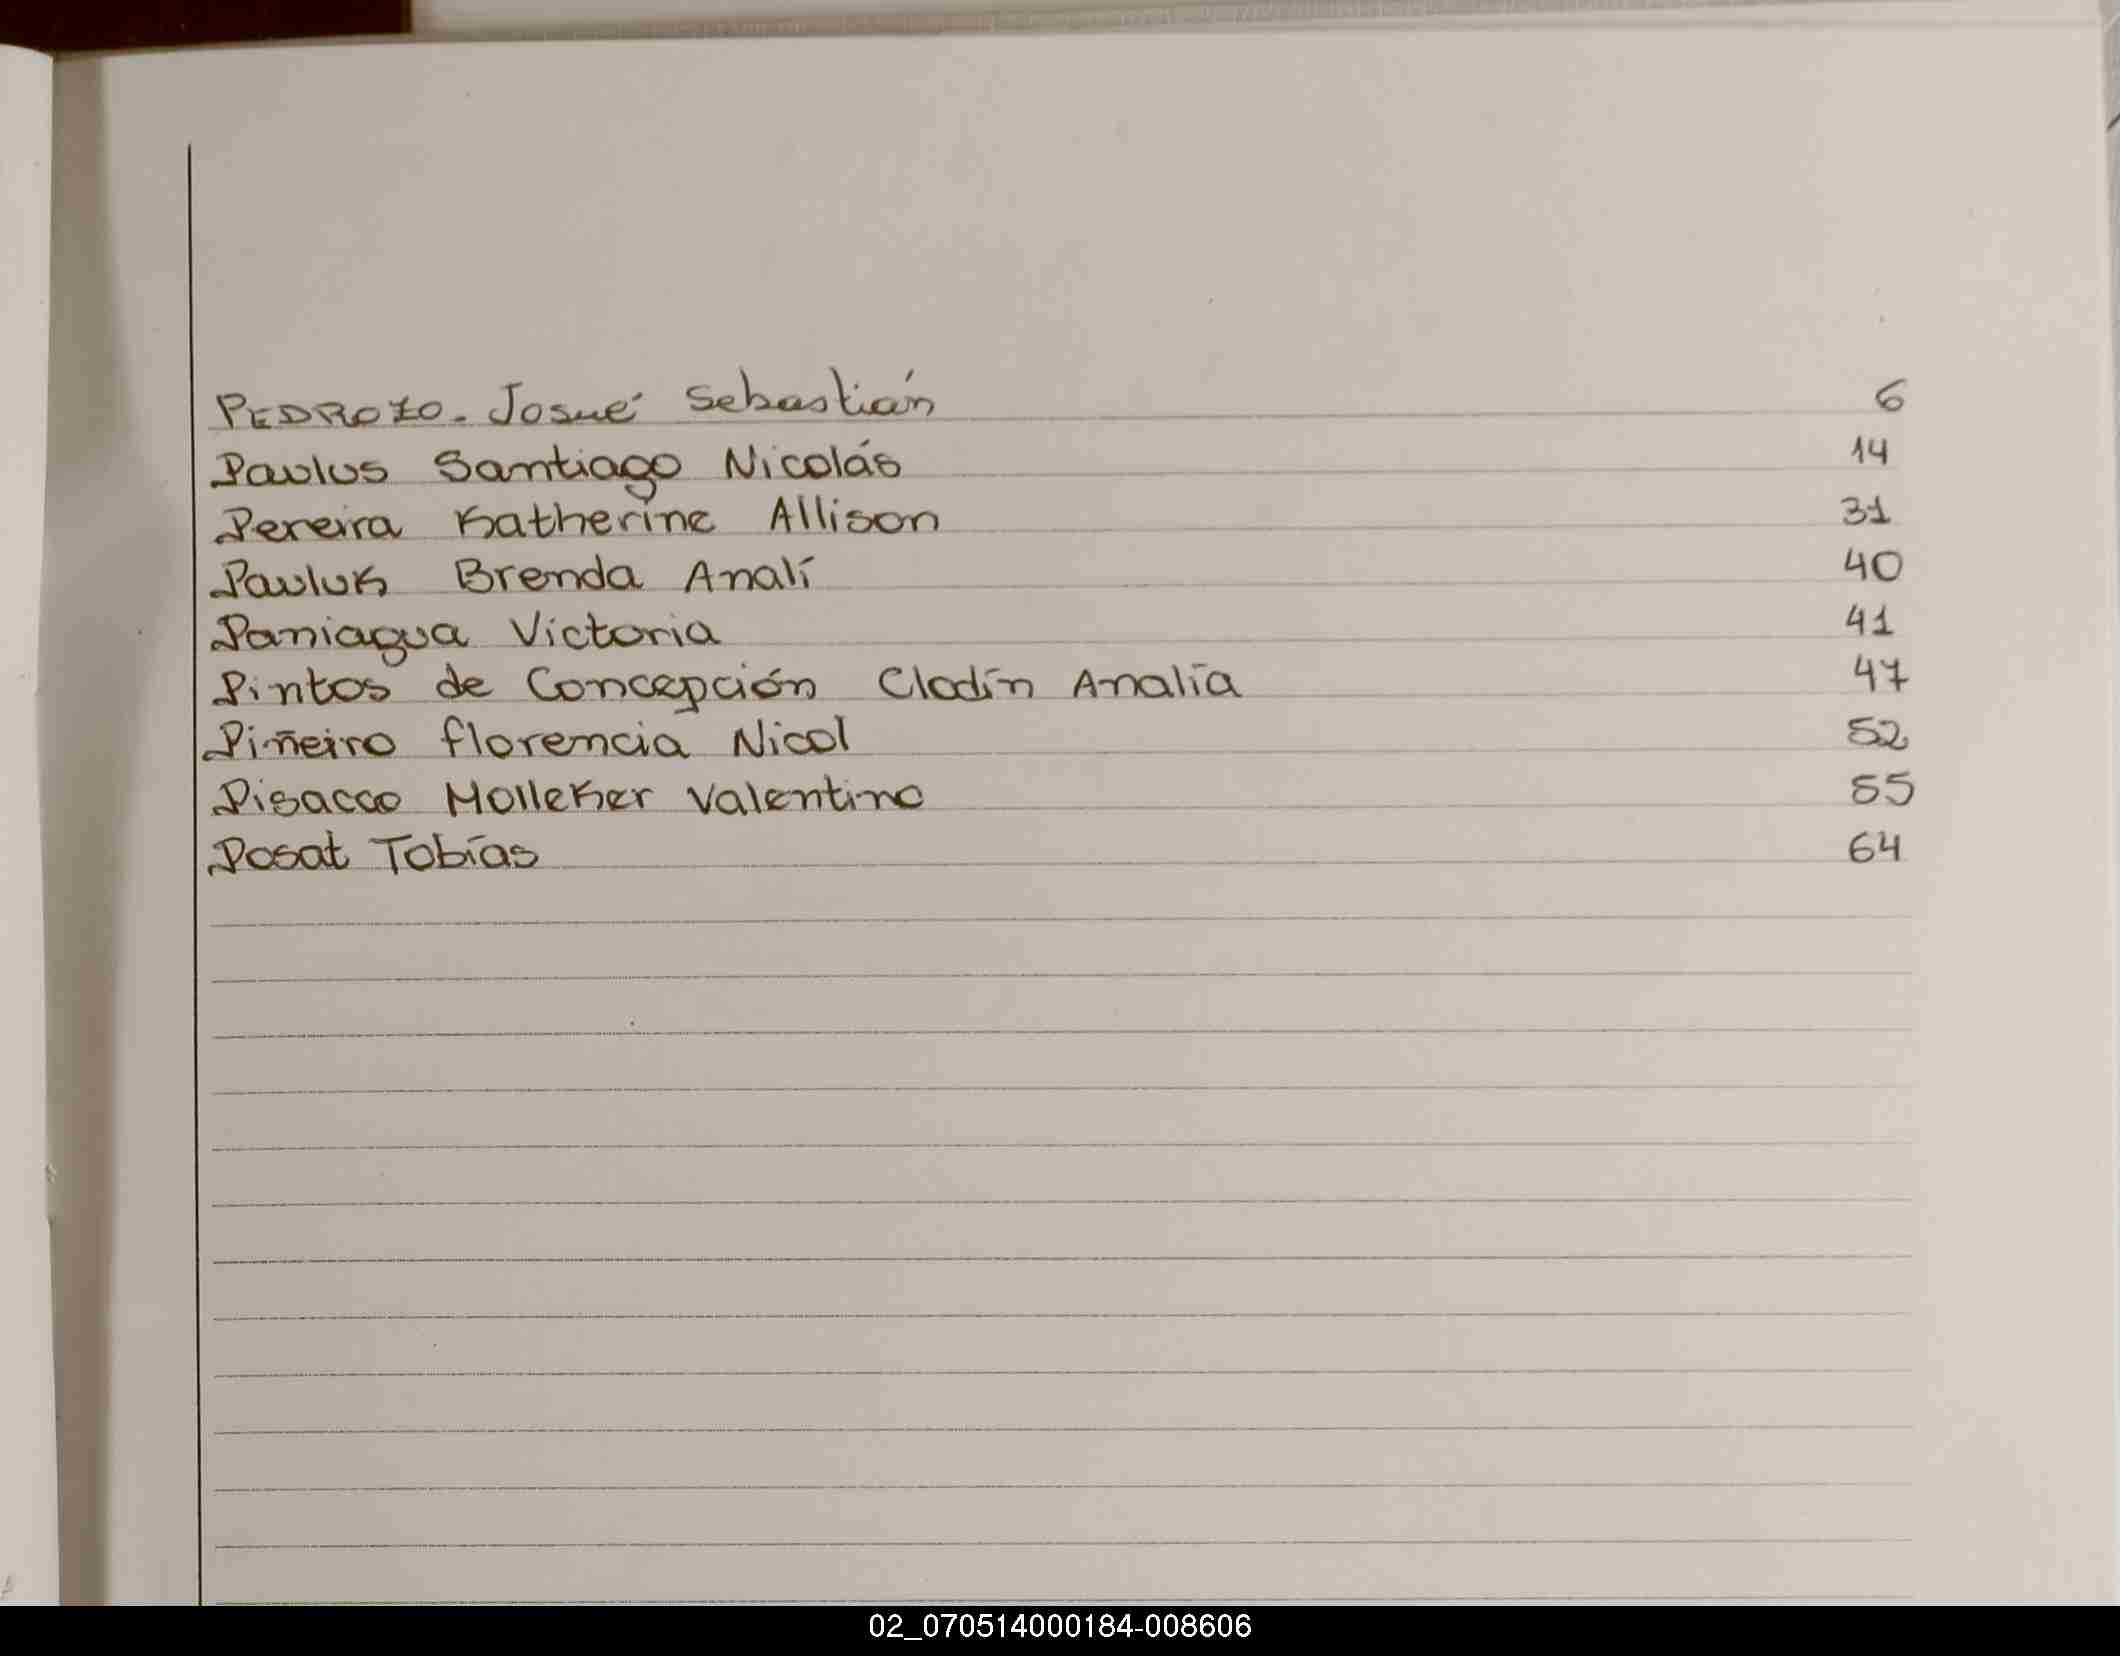 PEDROZO. Josué Sebastián 6
Paulus Santiago Nicolás 14
Pereira Katherine Allison 31
Pauluk Brenda Analí 40
Paniagua Victoria 41
Pintos de Concepción Clodín Analía 47
Piñeiro florencia Nicol 52
Pisacco Molleker Valentino 55
Posat Tobías 64
02_070514000184-008606